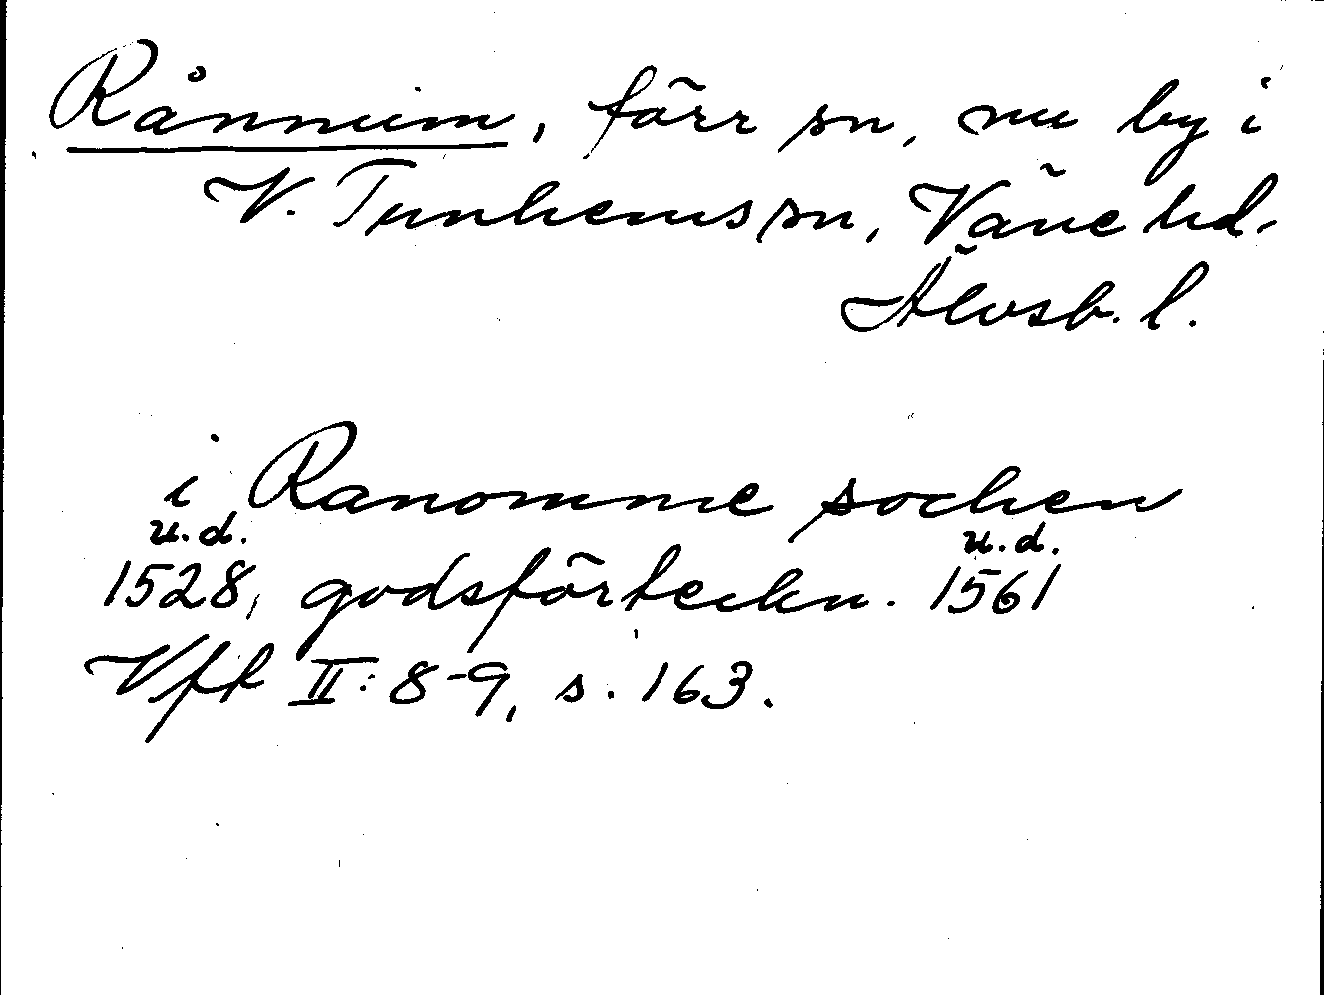 Rånnum, förr sn, nu by i
V. Tunhems sn, Väne hd.
Älvsb. l.
i Ranomme sochen
u.d. u.d.
1528, godsförteckn. 1561
Vft II: 8-9, s. 163.